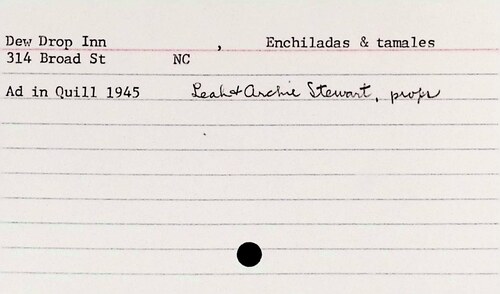 Dew Drop Inn , Enchiladas & tamales
314 Broad St NC
Ad in Quill 1945 Leah & Archie Stewart, props